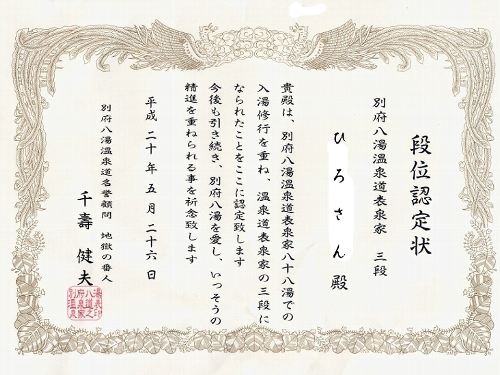 段位認定状
別府八湯温泉道表泉家 三段
ひろさん殿
貴殿は、別府八湯温泉道表泉家八十八湯での
入湯修行を重ね、温泉道表泉家の三段に
なられたことをここに認定致します
今後も引き続き、別府八湯を愛し、いっそうの
精進を重ねられる事を祈念致します
平成二十年五月二十六日
別府八湯温泉道名誉顧問 地獄の番人
千壽健夫